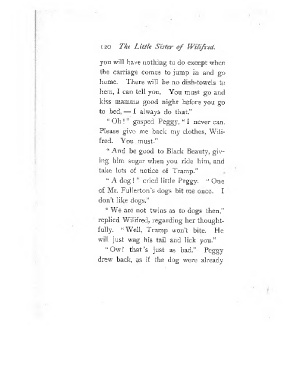 120 The Little Sister of Wilifred.
you will have nothing to do except when
the carriage comes to jump in and go
home. There will be no dish-towels to
hem, I can tell you. You must go and
kiss mamma good night before you go
to bed,—I always do that."
"Oh!" gasped Peggy, "I never can.
Please give me back my clothes, Wili-
fred. You must."
"And be good to Black Beauty, giv-
ing him sugar when you ride him, and
take lots of notice of Tramp."
"A dog!" cried little Peggy. "One
of Mr. Fullerton's dogs bit me once. I
don't like dogs."
"We are not twins as to dogs then,"
replied Wilifred, regarding her thought-
fully. "Well, Tramp won't bite. He
will just wag his tail and lick you."
"Ow! that's just as bad." Peggy
drew back, as if the dog were already